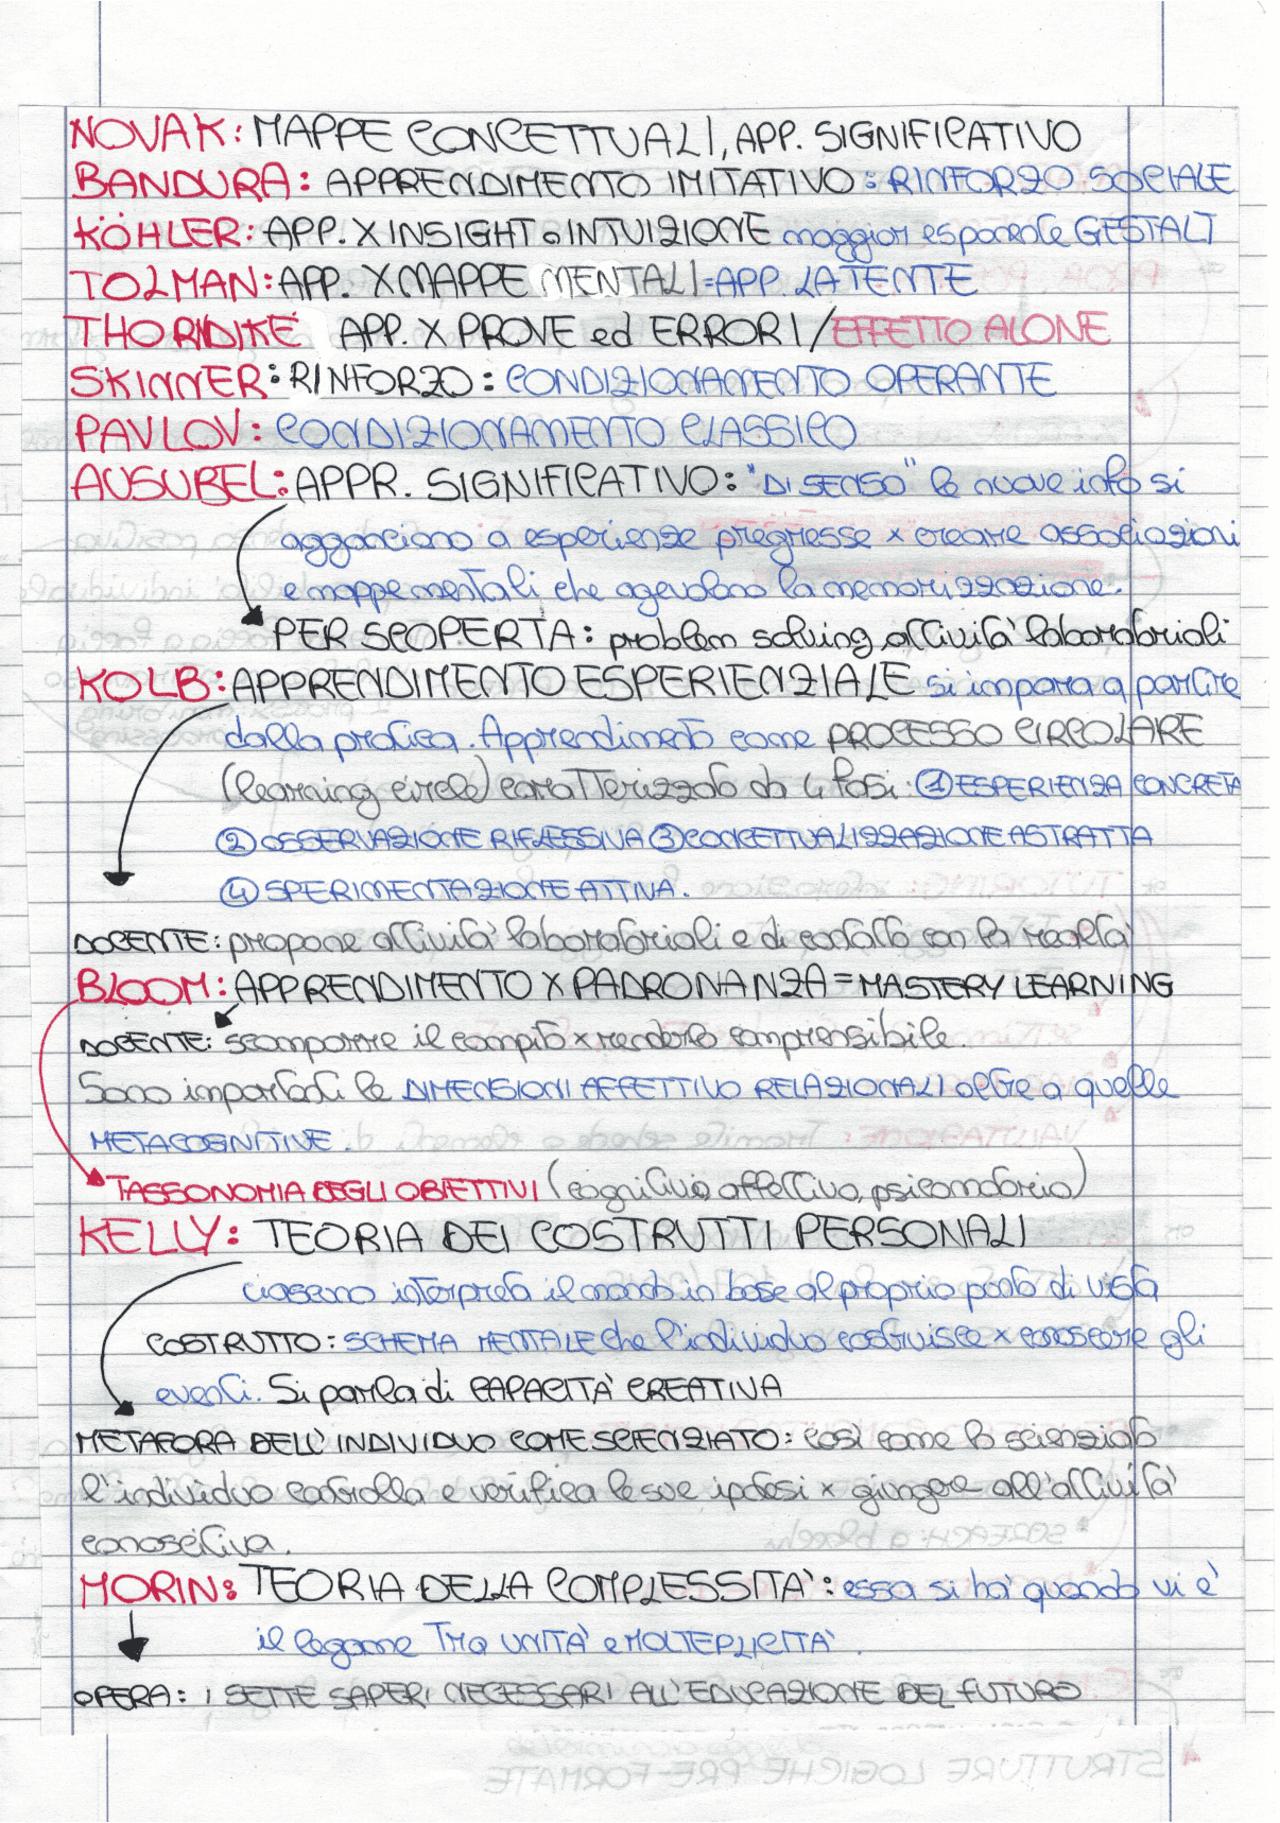 NOVAK: MAPPE CONCETTUALI, APP. SIGNIFICATIVO
BANDURA: APPRENDIMENTO IMITATIVO: RINFORZO SOCIALE
KÖHLER: APP. X INSIGHT o INTUIZIONE maggior esponente GESTALT
TOLMAN: APP. X MAPPE MENTALI = APP. LATENTE
THORNDIKE APP. X PROVE ed ERRORI / EFFETTO ALONE
SKINNER: RINFORZO: CONDIZIONAMENTO OPERANTE
PAVLOV: CONDIZIONAMENTO CLASSICO
AUSUBEL: APPR. SIGNIFICATIVO: "DI SENSO" le nuove info si
agganciano a esperienze pregresse x creare associazioni
e mappe mentali che agevolano la memorizzazione.
PER SCOPERTA: problem solving, attività laboratoriali
KOLB: APPRENDIMENTO ESPERIENZIALE si impara a partire
dalla pratica. Apprendimento come PROCESSO CIRCOLARE
(learning circle) caratterizzato da 4 fasi: ① ESPERIENZA CONCRETA
② OSSERVAZIONE RIFLESSIVA ③ CONCETTUALIZZAZIONE ASTRATTA
④ SPERIMENTAZIONE ATTIVA.
DOCENTE: propone attività laboratoriali e di contatto con la realtà
BLOOM: APPRENDIMENTO X PADRONANZA = MASTERY LEARNING
DOCENTE: scomporre il compito x renderlo comprensibile.
Sono importanti le DIMENSIONI AFFETTIVO RELAZIONALI oltre a quelle
METACOGNITIVE.
TASSONOMIA DEGLI OBIETTIVI (cognitivo, affettivo, psicomotorio)
KELLY: TEORIA DEI COSTRUTTI PERSONALI
ciascuno interpreta il mondo in base al proprio punto di vista
COSTRUTTO: SCHEMA MENTALE che l'individuo costruisce x conoscere gli
eventi. Si parla di CAPACITÀ CREATIVA
METAFORA DELL'INDIVIDUO COME SCIENZIATO: così come lo scienziato
l'individuo controlla e verifica le sue ipotesi x giungere all'attività
conoscitiva.
MORIN: TEORIA DELLA COMPLESSITÀ: essa si ha quando vi è
il legame TRA UNITÀ e MOLTEPLICITÀ.
OPERA: I SETTE SAPERI NECESSARI ALL'EDUCAZIONE DEL FUTURO
STRUTTURE LOGICHE PRE-FORMATE